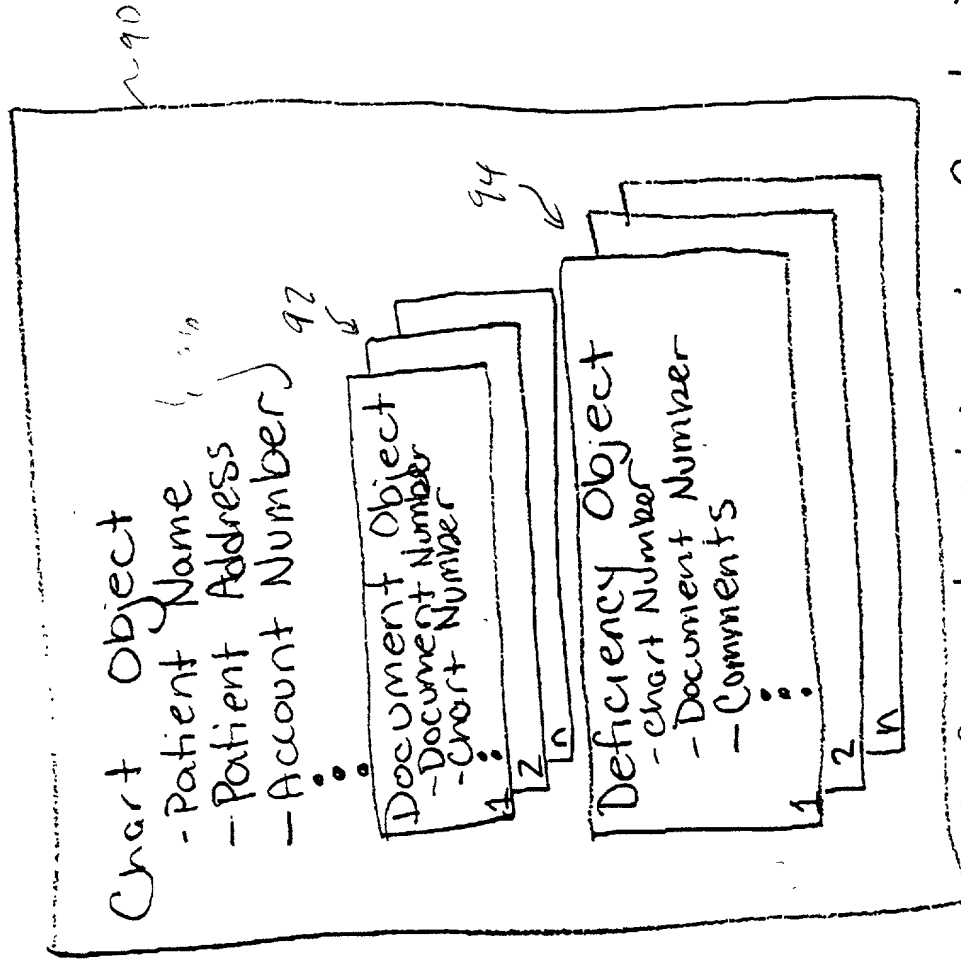 90
Chart Object
- Patient Name
- Patient Address
- Account Number
92
Document Object
- Document Number
- Chart Number
1
2
n
94
Deficiency Object
- Chart Number
- Document Number
- Comments
1
2
n